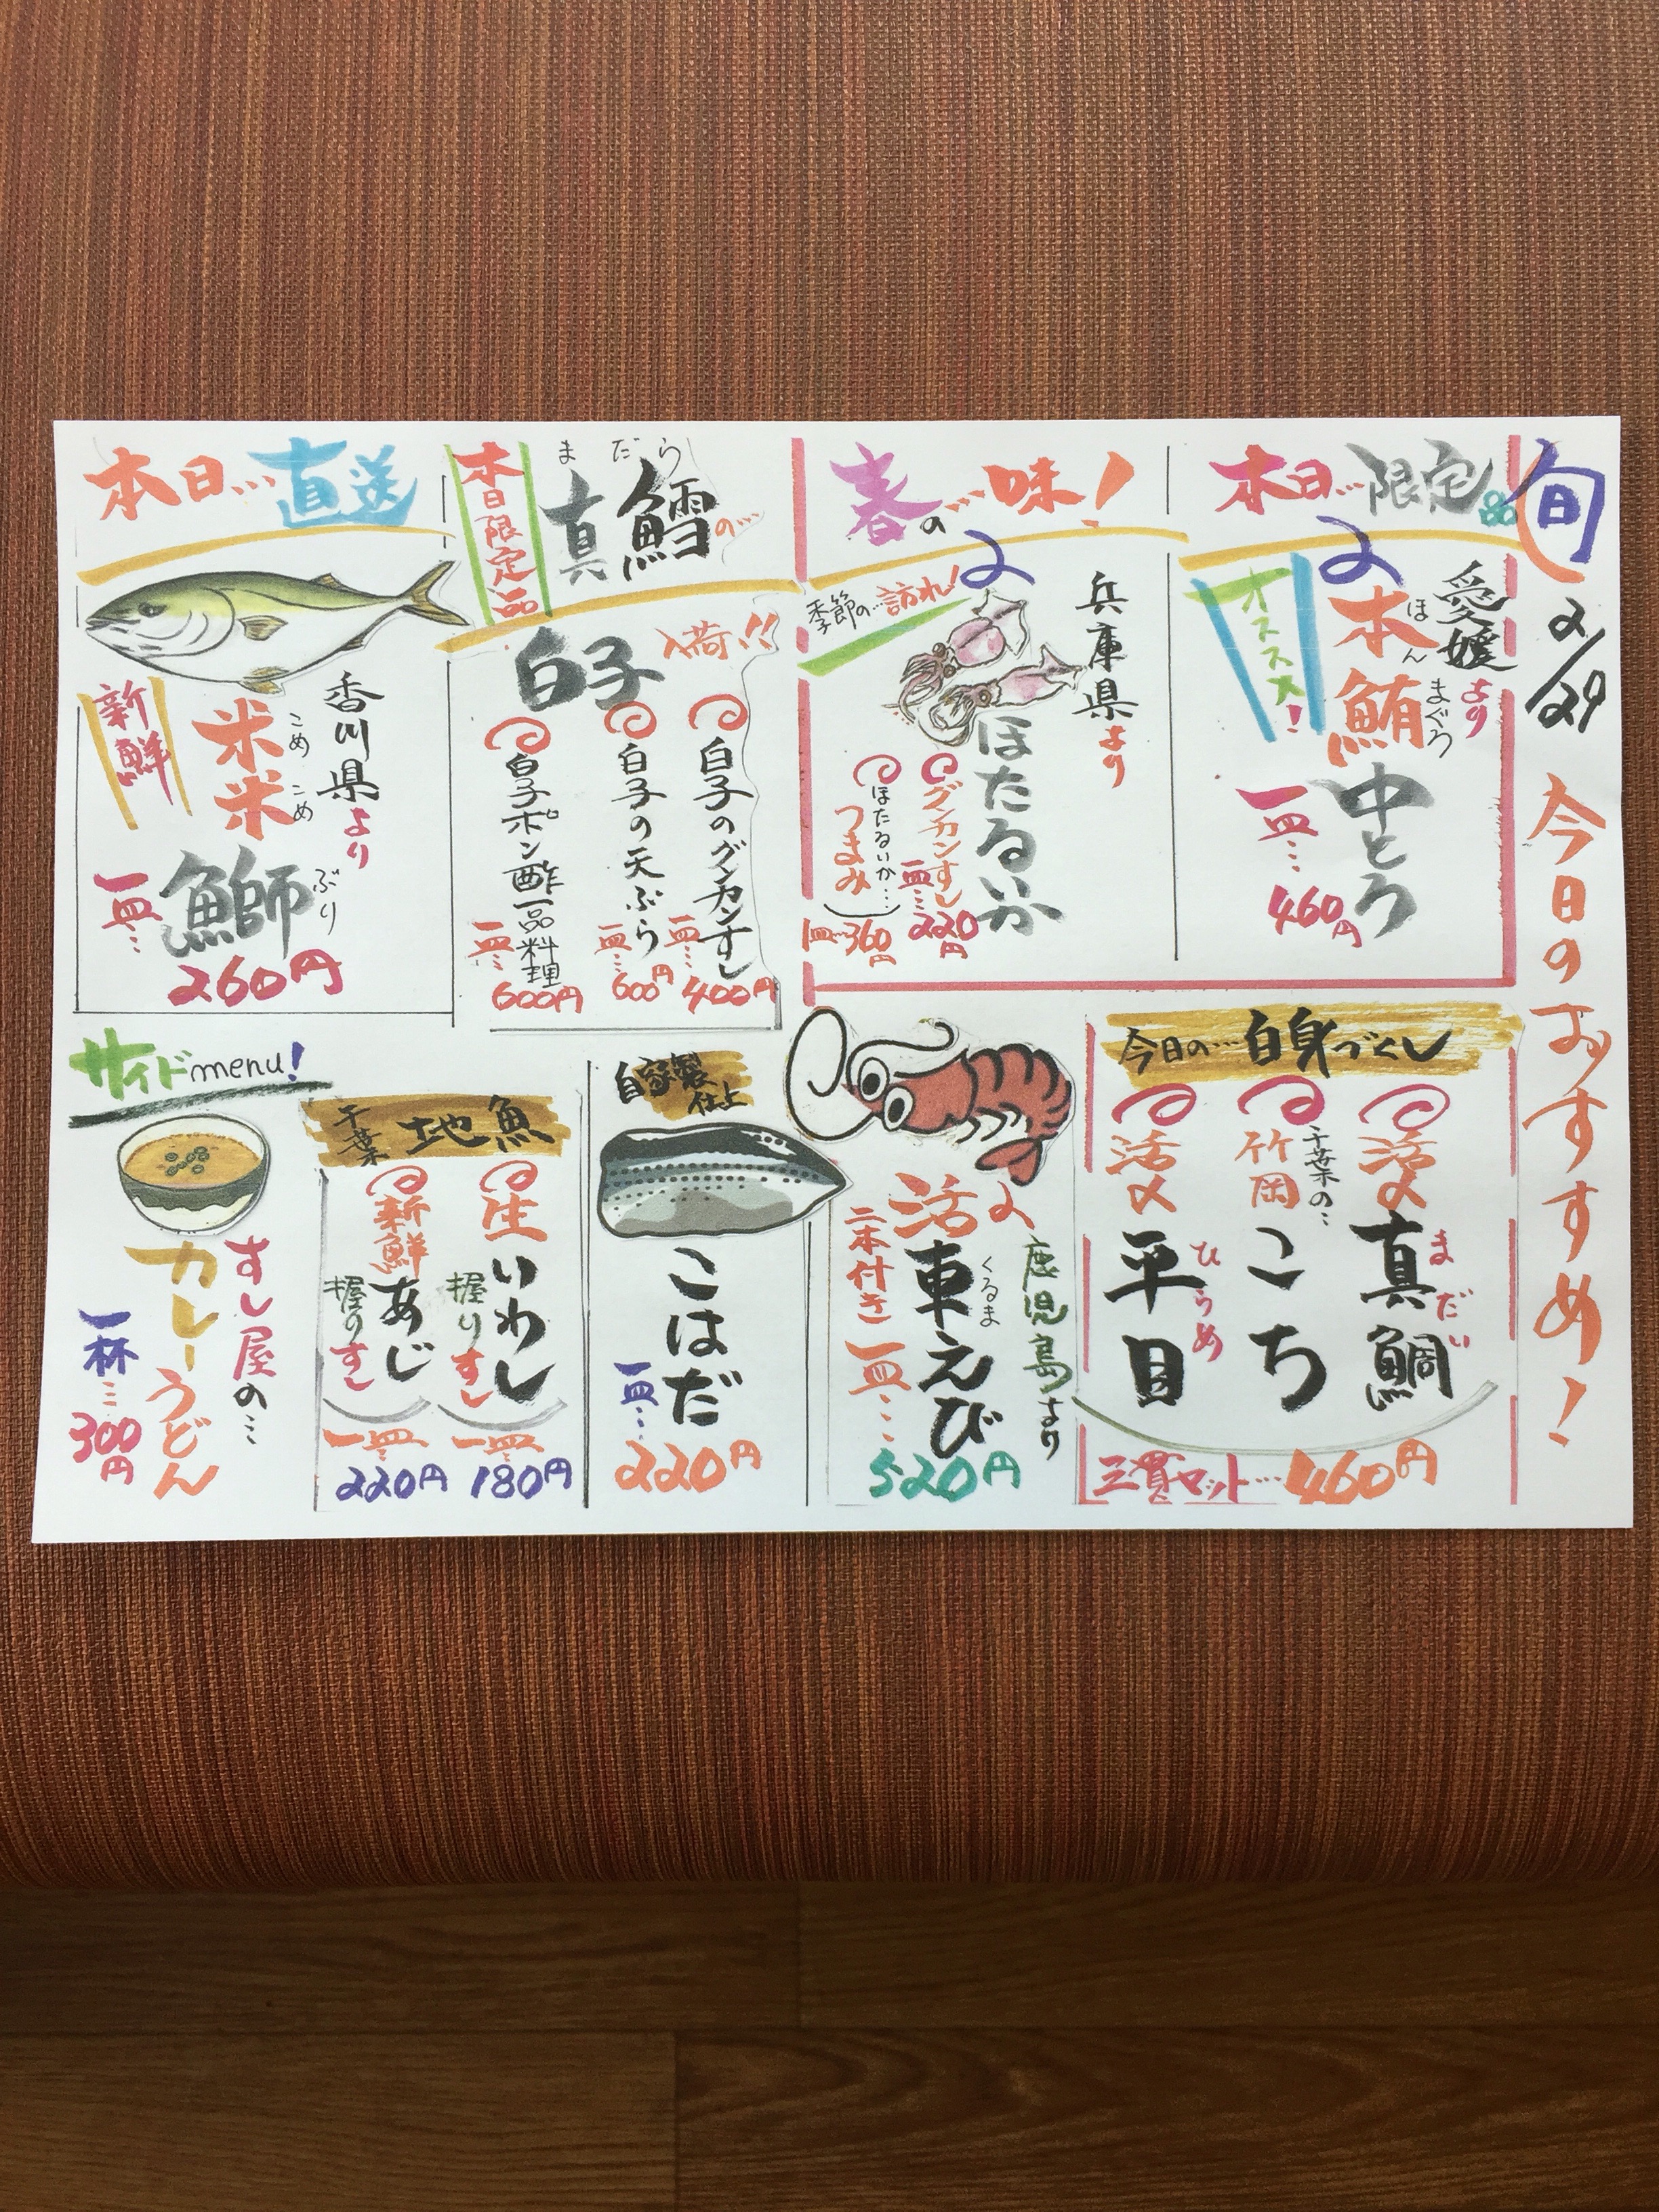 旬
2/29
今日のおすすめ!
本日…限定品
愛媛より
本鮪
ほんまぐろ
中とろ
オススメ!
一皿…
460円
春の…味!
季節の…訪れ!
兵庫県より
ほたるいか
グンカンすし
一皿…220円
ほたるいか…
つまみ
一皿…360円
本日限定品
まだら
真鱈の…
白子
入荷!!
白子のグンカンすし
一皿…400円
白子の天ぷら
一皿…600円
白子ポン酢一品料理
一皿…600円
本日…直送
香川県より
新鮮
米米鰤
こめこめぶり
一皿…
260円
今日の…白身づくし
活〆
真鯛
まだい
千葉の…
竹岡
こち
活〆
平目
ひらめ
三貫セット…460円
鹿児島より
活
車えび
くるま
二本付き
一皿…
520円
自家製
仕込
こはだ
一皿…
220円
千葉
地魚
生
いわし
握りすし
一皿…
180円
新鮮
あじ
握りすし
一皿…
220円
サイドmenu!
すし屋の…
カレーうどん
一杯…
300円